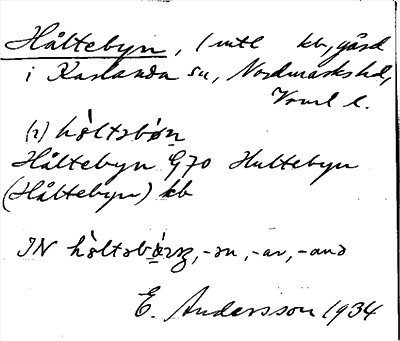 Håltebyn, 1 mtl kb, gård
i Karlanda sn, Nordmarks hd,
Vrml l.
(2) hòltəbẏn
Håltebyn G70 Hultebyn
(Håltebyn) kb
IN -ən, -ar, -anə
E. Andersson 1934